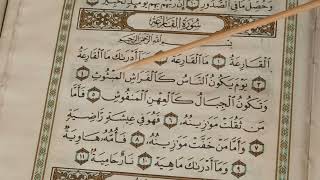 وَحُصِّلَ مَا فِي الصُّدُورِ ۝١٠ إِنَّ رَبَّهُم بِهِمْ يَوْمَئِذٍ لَّخَبِيرٌ
سُورَةُ القَارِعَةِ
بِسْمِ اللَّهِ الرَّحْمَٰنِ الرَّحِيمِ
الْقَارِعَةُ ۝١ مَا الْقَارِعَةُ ۝٢ وَمَا أَدْرَىٰكَ مَا الْقَارِعَةُ
۝٣ يَوْمَ يَكُونُ النَّاسُ كَالْفَرَاشِ الْمَبْثُوثِ ۝٤
وَتَكُونُ الْجِبَالُ كَالْعِهْنِ الْمَنفُوشِ ۝٥ فَأَمَّا
مَن ثَقُلَتْ مَوَٰزِينُهُ ۝٦ فَهُوَ فِي عِيشَةٍ رَّاضِيَةٍ
۝٧ وَأَمَّا مَنْ خَفَّتْ مَوَٰزِينُهُ ۝٨ فَأُمُّهُ هَاوِيَةٌ
۝٩ وَمَا أَدْرَىٰكَ مَا هِيَهْ ۝١٠ نَارٌ حَامِيَةٌ ۝١١